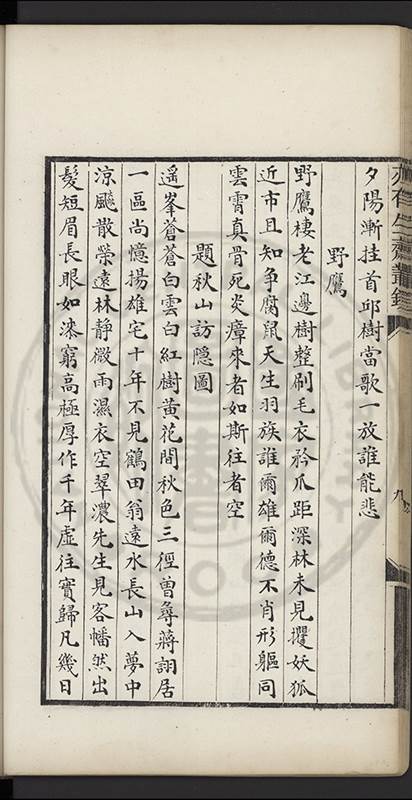 夕陽漸挂首邱樹當歌一放誰能悲
野鷹
野鷹棲老江邊樹整刷毛衣矜爪距深林未見攫妖狐
近市且知争腐鼠天生羽族誰爾雄爾德不肖形軀同
雲霄真骨死炎瘴來者如斯往者空
題秋山訪隱圖
遥峯蒼蒼白雲白紅樹黄花間秋色三徑曾尋蔣詡居
一區尚憶揚雄宅十年不見鶴田翁遠水長山入夢中
涼飈散縈遠林静微雨濕衣空翠濃先生見客幡然出
髮短眉長眼如漆窮高極厚作千年虚往實歸凡幾日